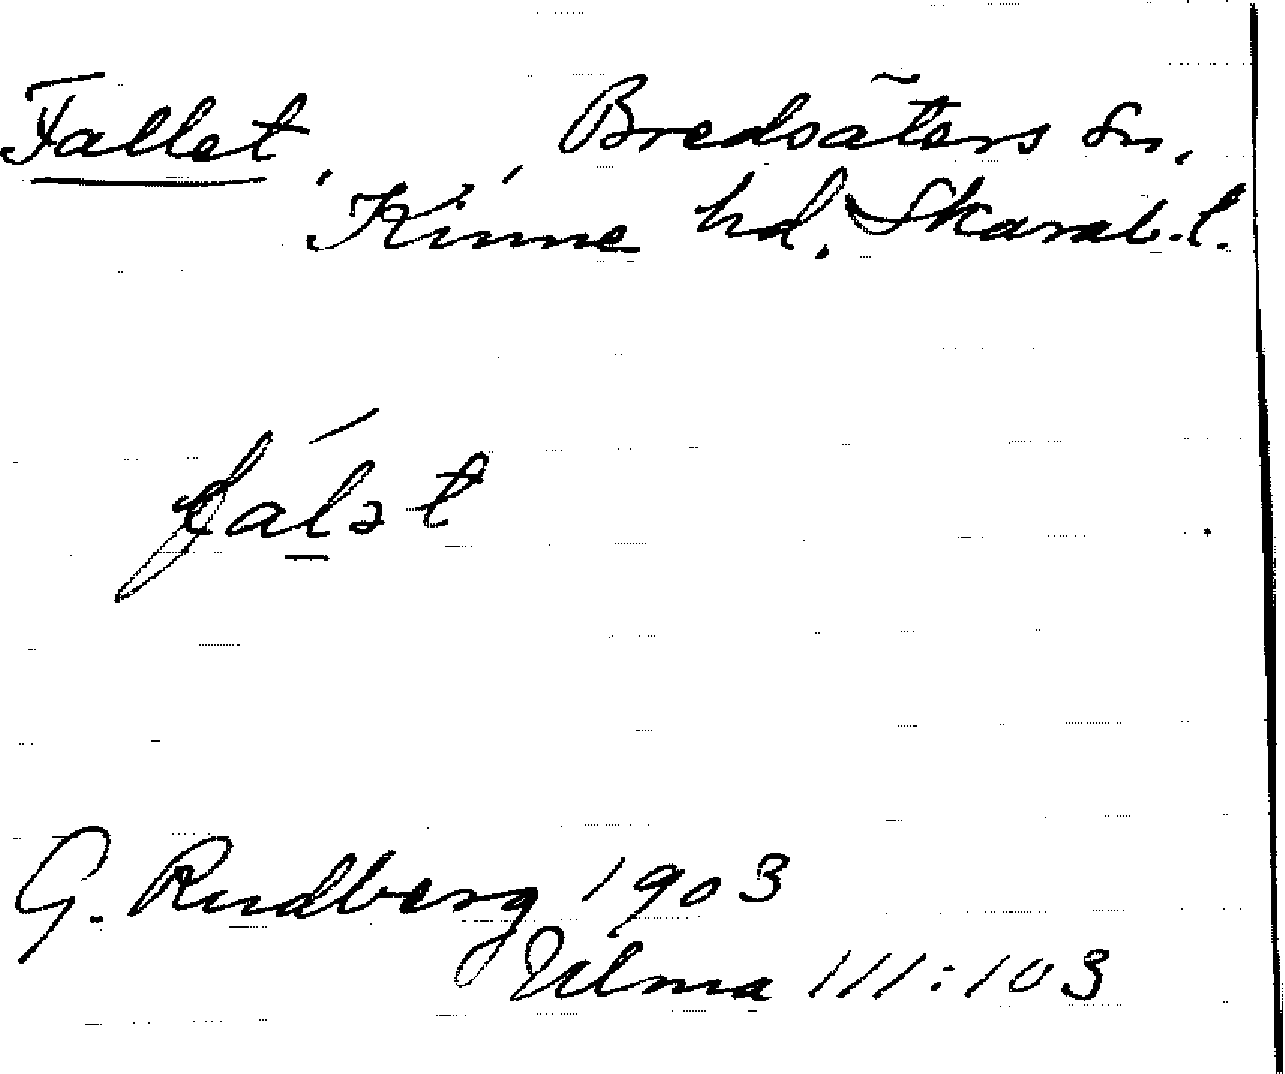 Fallet, Bredsäters sn,
Kinne hd. Skarab.l.
fálət
G. Rudberg 1903
Ulma 111:103